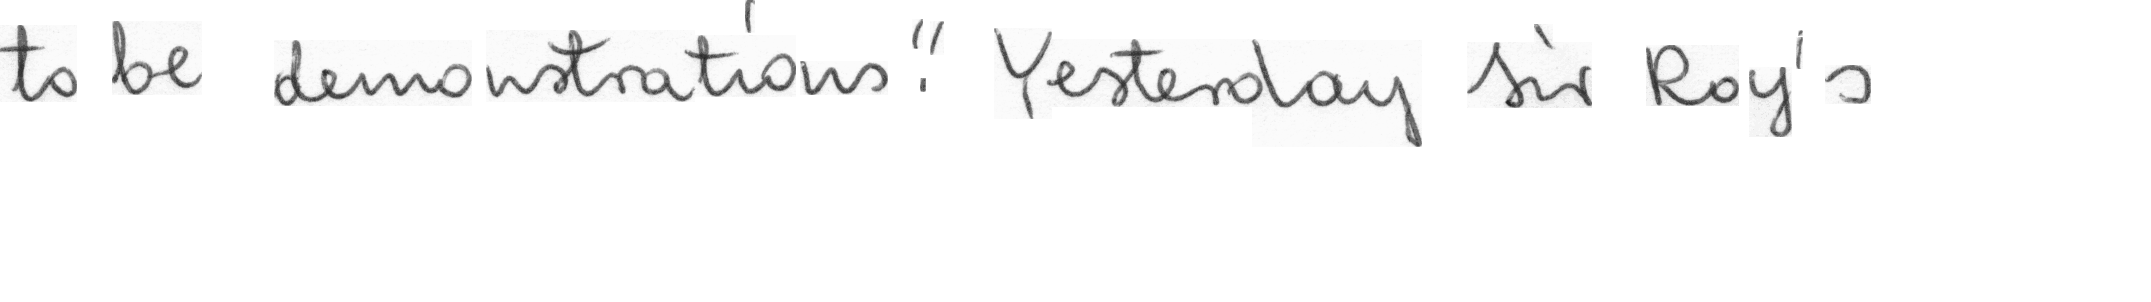 to be demonstrations." Yesterday Sir Roy's